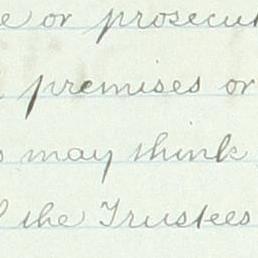 or prosecut
premises or
may think
the Trustees